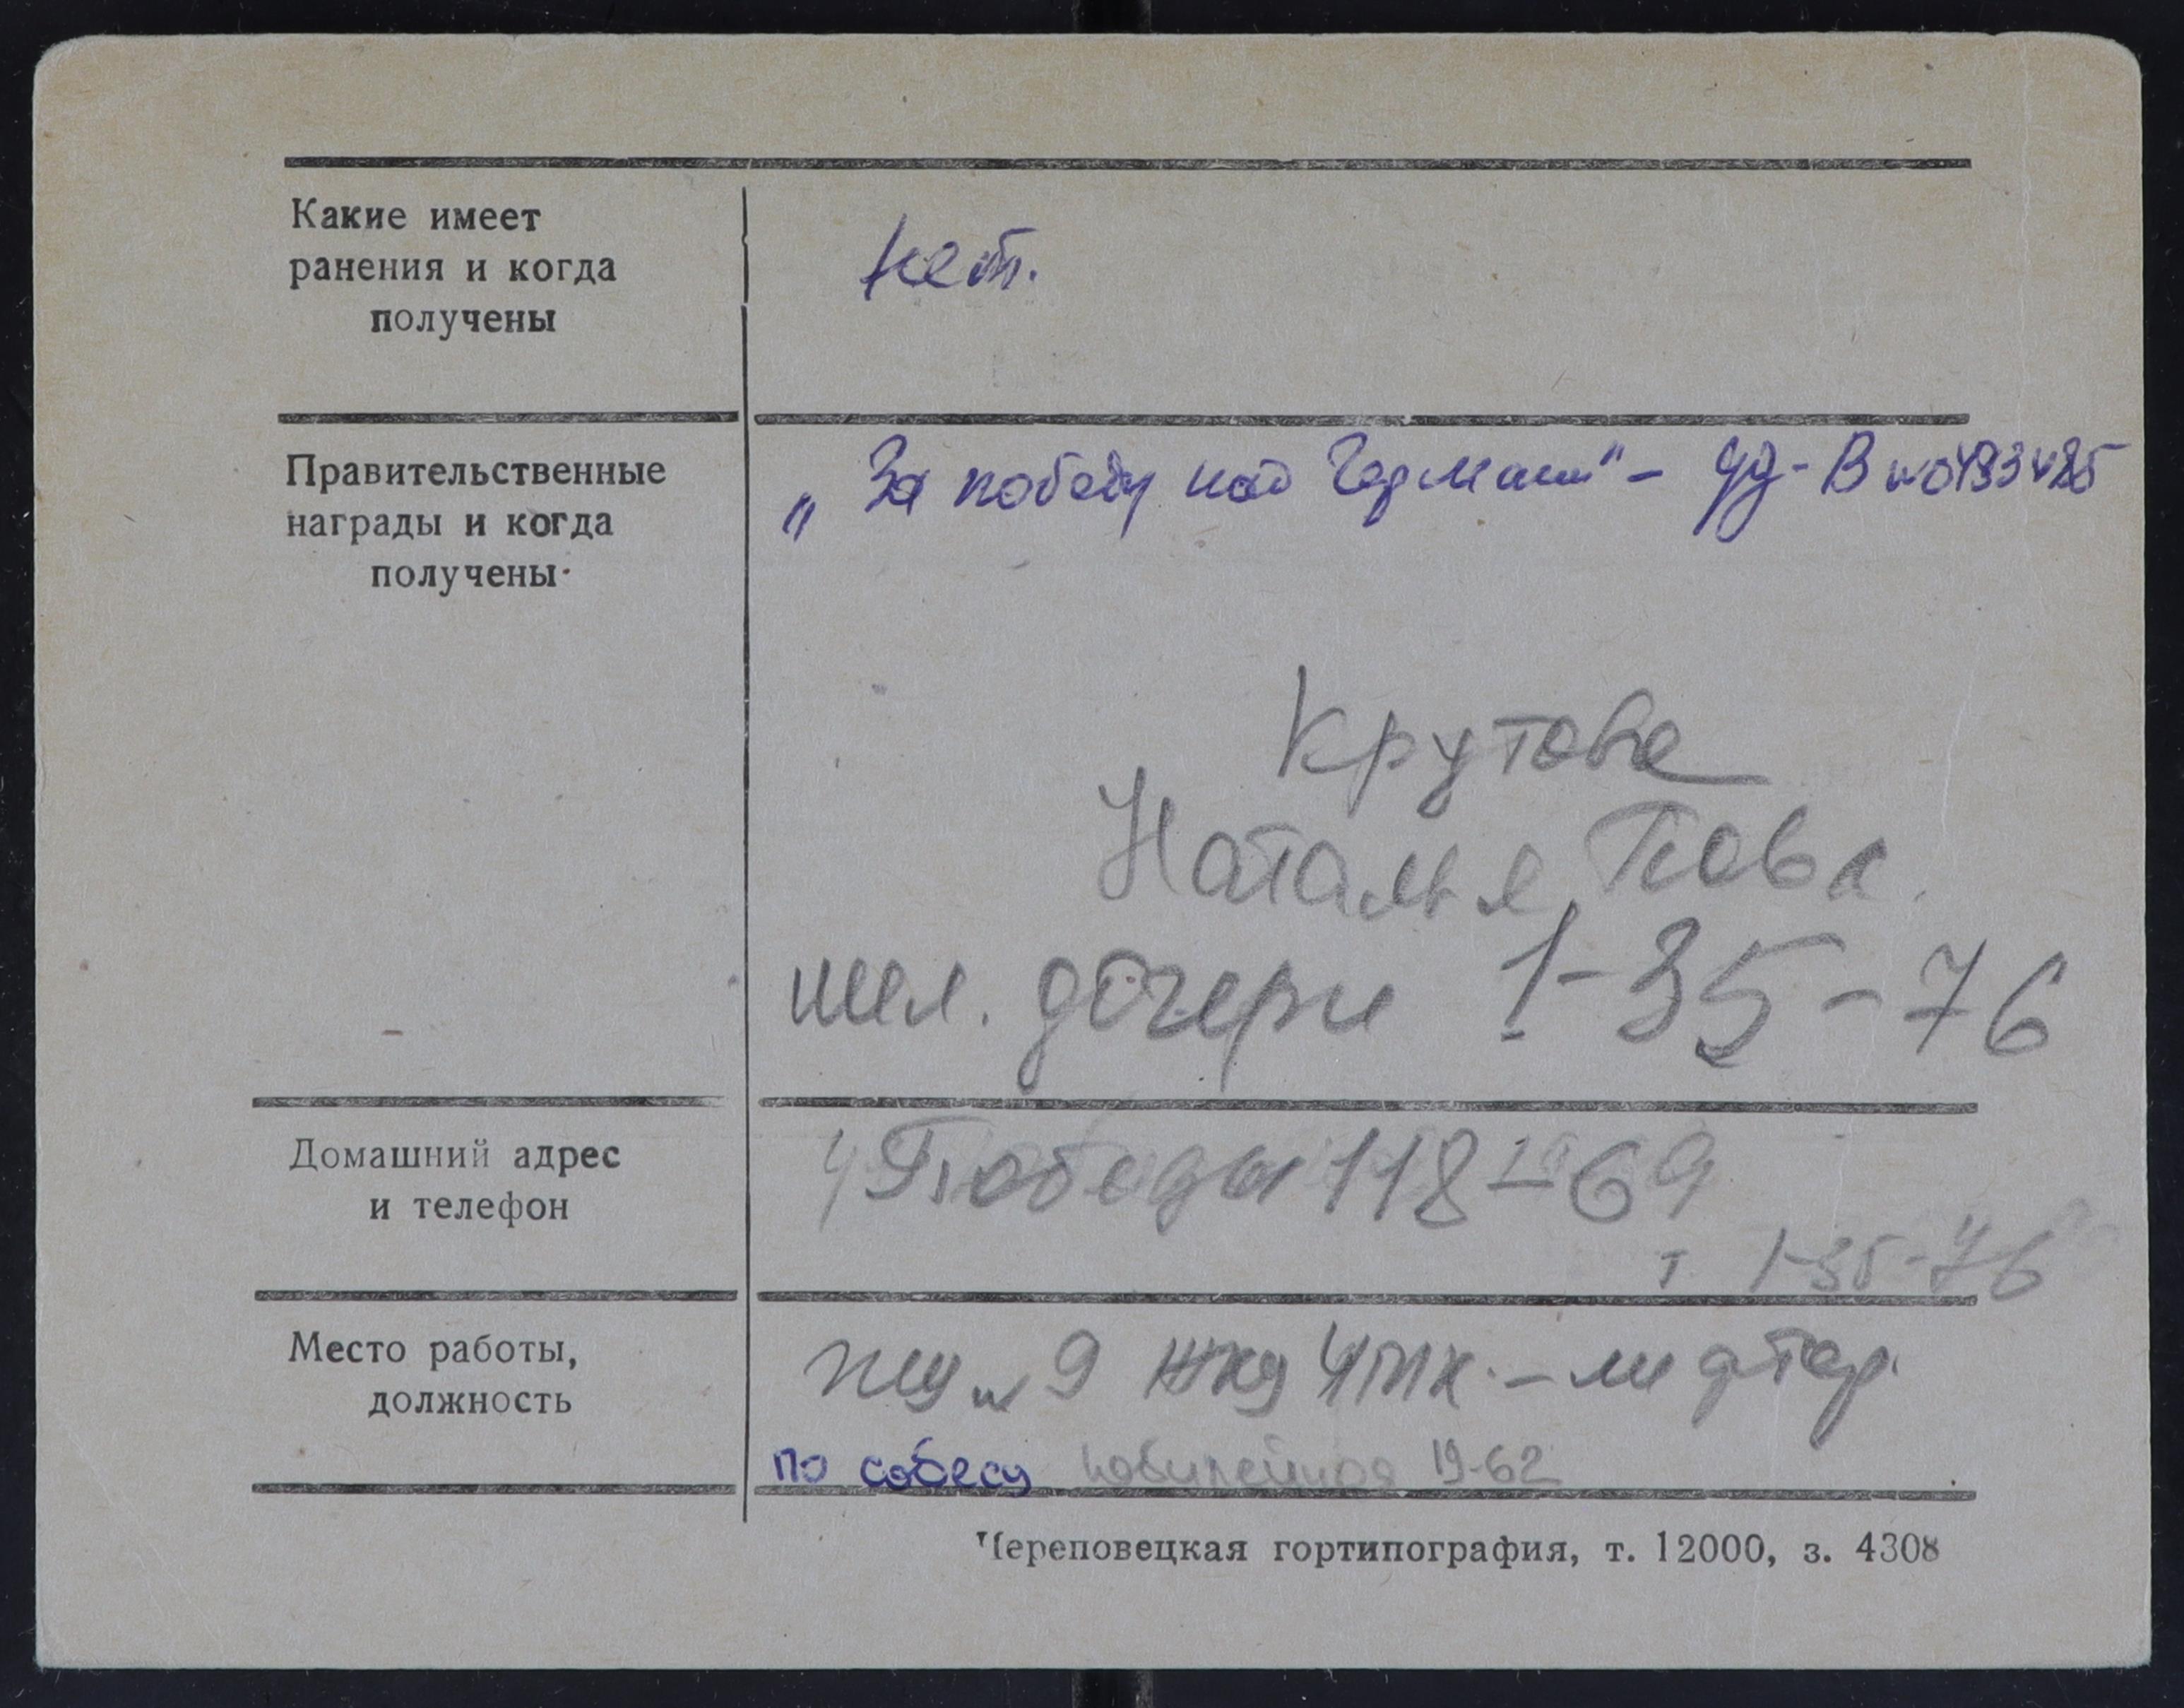 Какие имеет
ранения и когда
получены
нет.
Правительственные
награды и когда
получены
„За победу над Германи" - уд-В №0493485
Крутова
Наталья Павл.
тел. дочери 1-35-76
Домашний адрес
и телефон
Победы 118-69
т. 1-35-76
Место работы,
должность
жку №9 жку ЧМК. - лифтер.
по собесу Юбилейная 19-62
Череповецкая гортипография, т. 12000, з. 4308